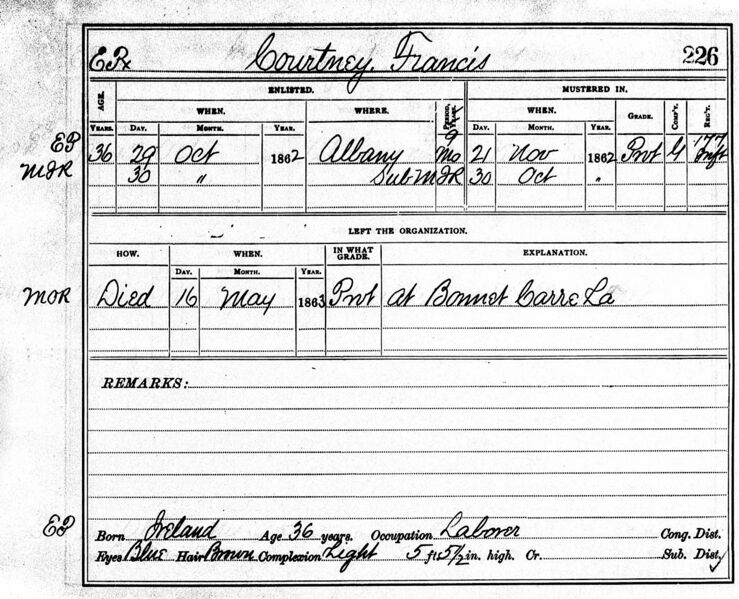 Courtney, Francis 226
ENLISTED. MUSTERED IN.
AGE. WHEN. WHERE. PERIOD, YEARS. WHEN. GRADE. COMP'Y. REG'T.
YEARS. DAY. MONTH. YEAR. DAY. MONTH. YEAR.
EP 36 29 Oct 1862 Albany 9 Mo 21 Nov 1862 Pvt G 177 Inft
MIR 30 " Sub MIR 30 Oct "
LEFT THE ORGANIZATION.
HOW. WHEN. IN WHAT GRADE. EXPLANATION.
DAY. MONTH. YEAR.
MOR Died 16 May 1863 Pvt at Bonnet Carre La
REMARKS:
EP Born Ireland Age 36 years. Occupation Laborer Cong. Dist.
Eyes Blue Hair Brown Complexion Light 5 ft 5 1/2 in. high. Cr. Sub. Dist.